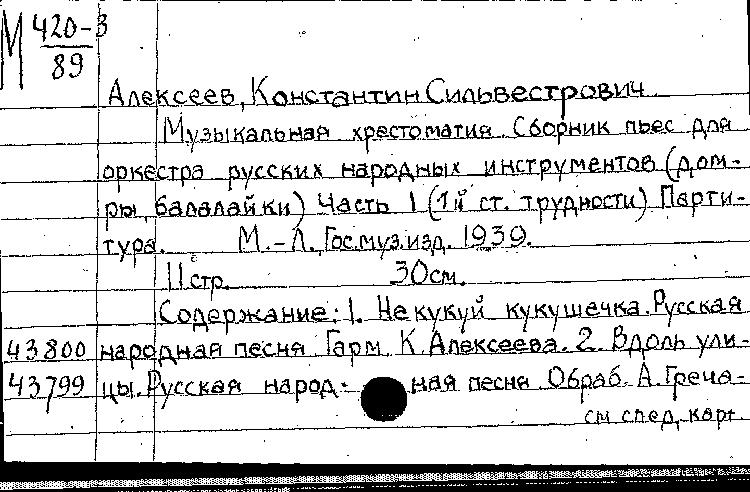 М 420-3
89
Алексеев, Константин Сильвестрович
Музыкальная хрестоматия. Сборник пьес для
оркестра русских народных инструментов (дом-
ры, балалайки) Часть 1 (1й ст. трудности) Парти-
тура. М.-Л., Гос.муз.изд. 1939.
11 стр. 30 см.
Содержание: 1. Не кукуй кукушечка. Русская
43800 народная песня. Гарм. К. Алексеева. 2. Вдоль ули-
43799 цы. Русская народ- ная песня. Обраб. А. Греча-
см след. карт.